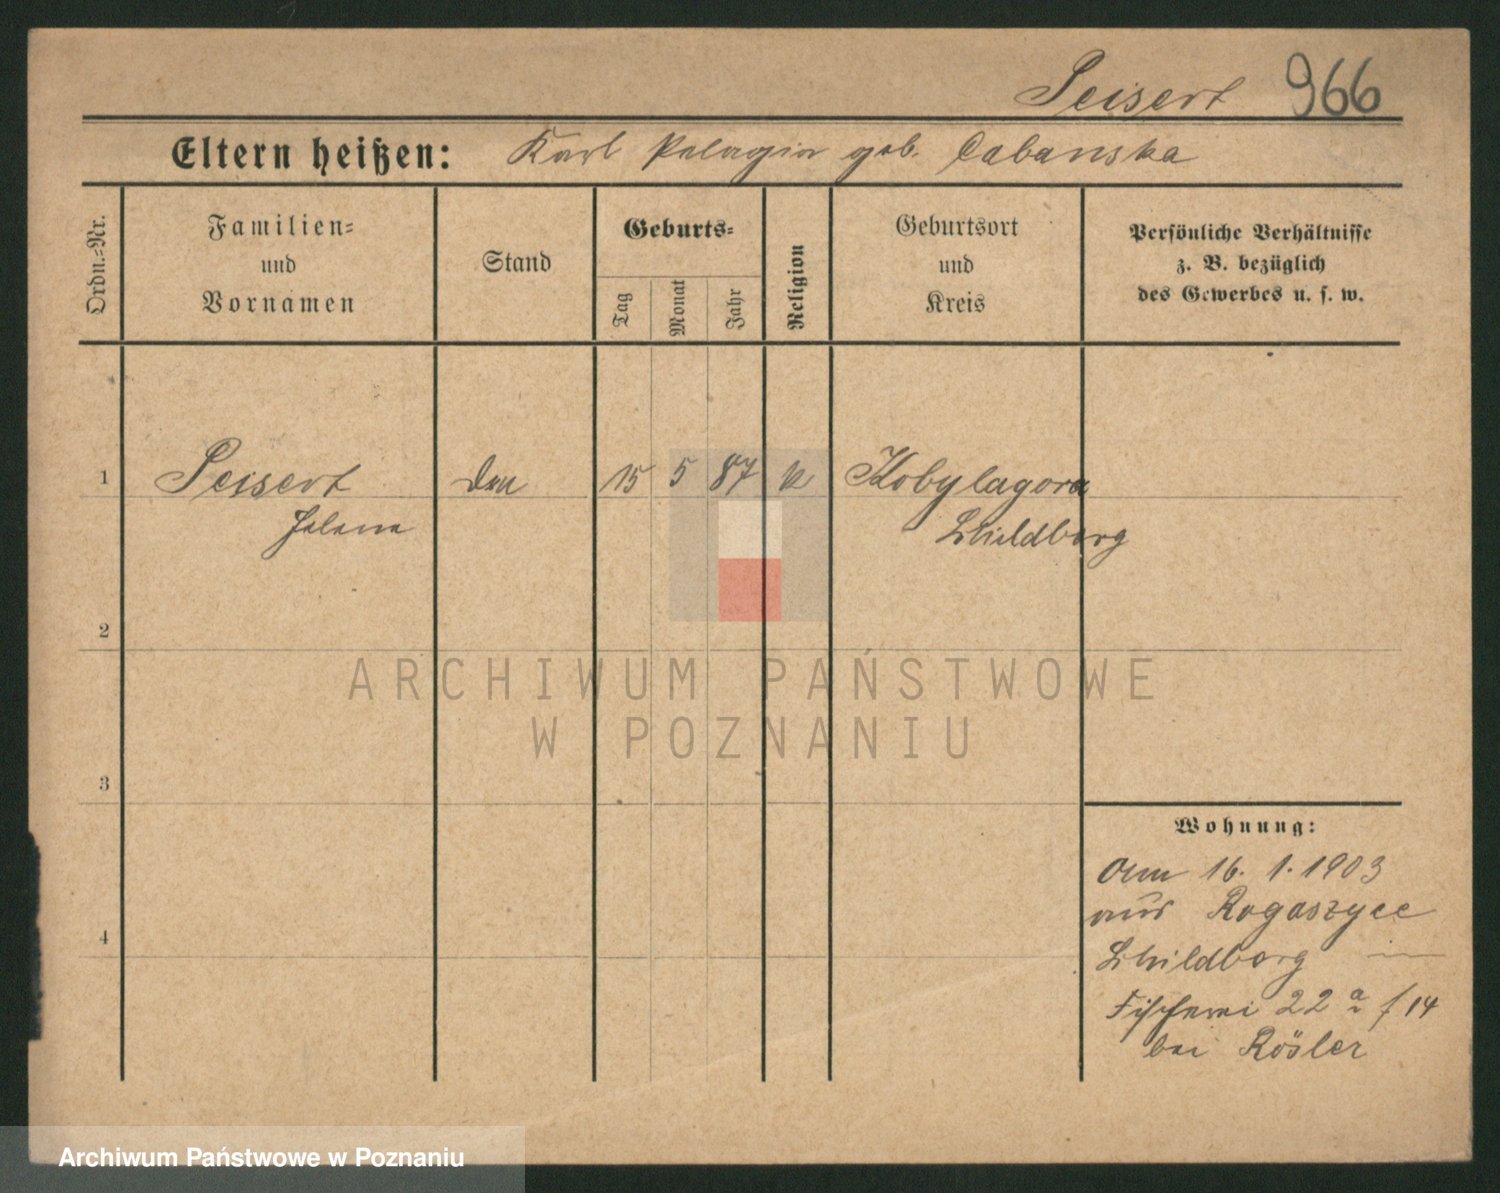 Seisert 966
Eltern heißen: Karl Pelagia geb. Cabanska
Ordn.-Nr.
Familien-
und
Vornamen
Stand
Geburts-
Tag
Monat
Jahr
Religion
Geburtsort
und
Kreis
Persönliche Verhältnisse
z. B. bezüglich
des Gewerbes u. s. w.
1 Seisert 15 5 87 k Kobylagora
Helene Schildberg
2
3
4
Wohnung:
Am 16. 1. 1903
aus Rogaszyce
Schildberg
Fischerei 22 a / 14
bei Rösler
ARCHIWUM PAŃSTWOWE
W POZNANIU
Archiwum Państwowe w Poznaniu